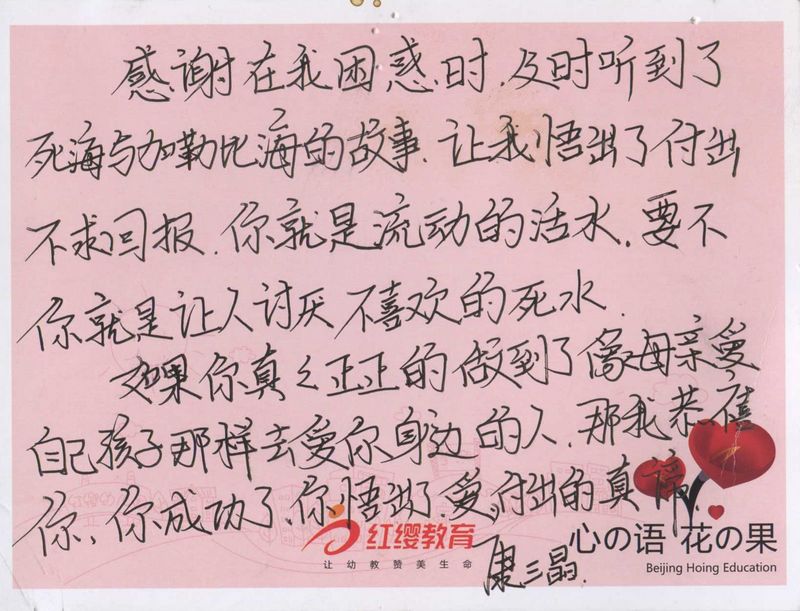 感谢在我困惑时,及时听到了
死海与加勒比海的故事.让我悟出了付出
不求回报.你就是流动的活水.要不
你就是让人讨厌不喜欢的死水.
如果你真真正正的做到了像母亲爱
自己孩子那样去爱你身边的人.那我恭禧
你,你成功了.你悟出了.爱,付出的真谛.
红缨教育
让幼教赞美生命
心の语 花の果
Beijing Hoing Education
康三晶.